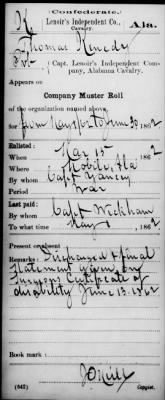 Confederate.
K Lenoir's Independent Co., Cavalry. Ala.
Thomas Kenedy
Pvt, Capt. Lenoir's Independent Company, Alabama Cavalry.
Appears on
Company Muster Roll
of the organization named above,
for from May 1 to June 30, 1862
Enlisted:
When Mar 15, 1862
Where Mobile, Ala
By whom Capt
Period War
Last paid:
By whom Capt Wickham
To what time May, 1862
Present or absent
Remarks: Discharged & final
statement given by
Surgeons Certificate of
disability June 13. 1862
Book mark:
(642)